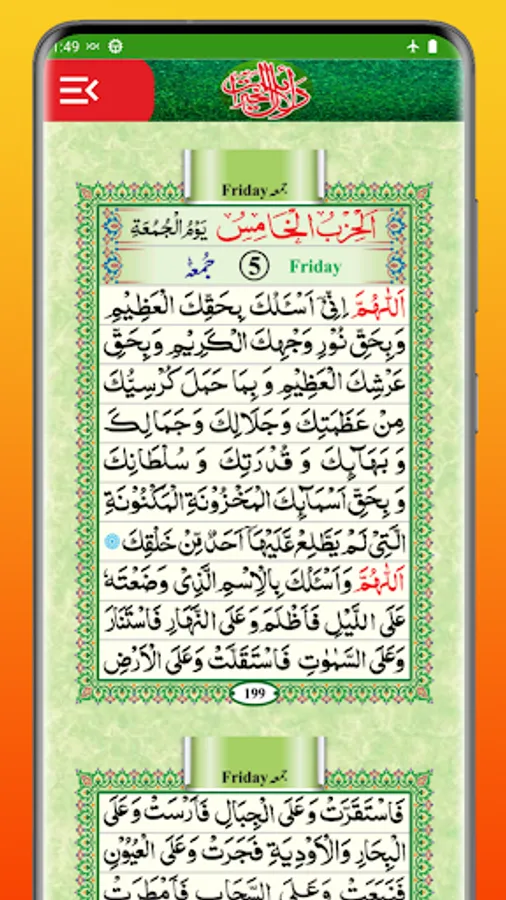 1:49
دلائل الخيرات
Friday جمعہ
اَلْحِزْبُ الْخَامِسُ يَوْمُ الْجُمُعَةِ
Friday 5 جُمعہ
اَللّٰهُمَّ اِنِّيْٓ اَسْئَلُكَ بِحَقِّكَ الْعَظِيْمِ
وَبِحَقِّ نُوْرِ وَجْهِكَ الْكَرِيْمِ وَبِحَقِّ
عَرْشِكَ الْعَظِيْمِ وَ بِمَا حَمَلَ كُرْسِيُّكَ
مِنْ عَظَمَتِكَ وَجَلَالِكَ وَجَمَالِكَ
وَ بَهَآئِكَ وَ قُدْرَتِكَ وَ سُلْطَانِكَ
وَ بِحَقِّ اَسْمَآئِكَ الْمَخْزُوْنَةِ الْمَكْنُوْنَةِ
الَّتِيْ لَمْ يَطَّلِعْ عَلَيْهَآ اَحَدٌ مِّنْ خَلْقِكَ
اَللّٰهُمَّ وَاَسْئَلُكَ بِالْاِسْمِ الَّذِيْ وَضَعْتَهٗ
عَلَى اللَّيْلِ فَاَظْلَمَ وَعَلَى النَّهَارِ فَاسْتَنَارَ
وَعَلَى السَّمٰوٰتِ فَاسْتَقَلَّتْ وَعَلَى الْاَرْضِ
199
Friday جمعہ
فَاسْتَقَرَّتْ وَعَلَى الْجِبَالِ فَاَرْسَتْ وَعَلَى
الْبِحَارِ وَالْاَوْدِيَةِ فَجَرَتْ وَعَلَى الْعُيُوْنِ
فَنَبَعَتْ وَعَلَى السَّحَابِ فَاَمْطَرَتْ